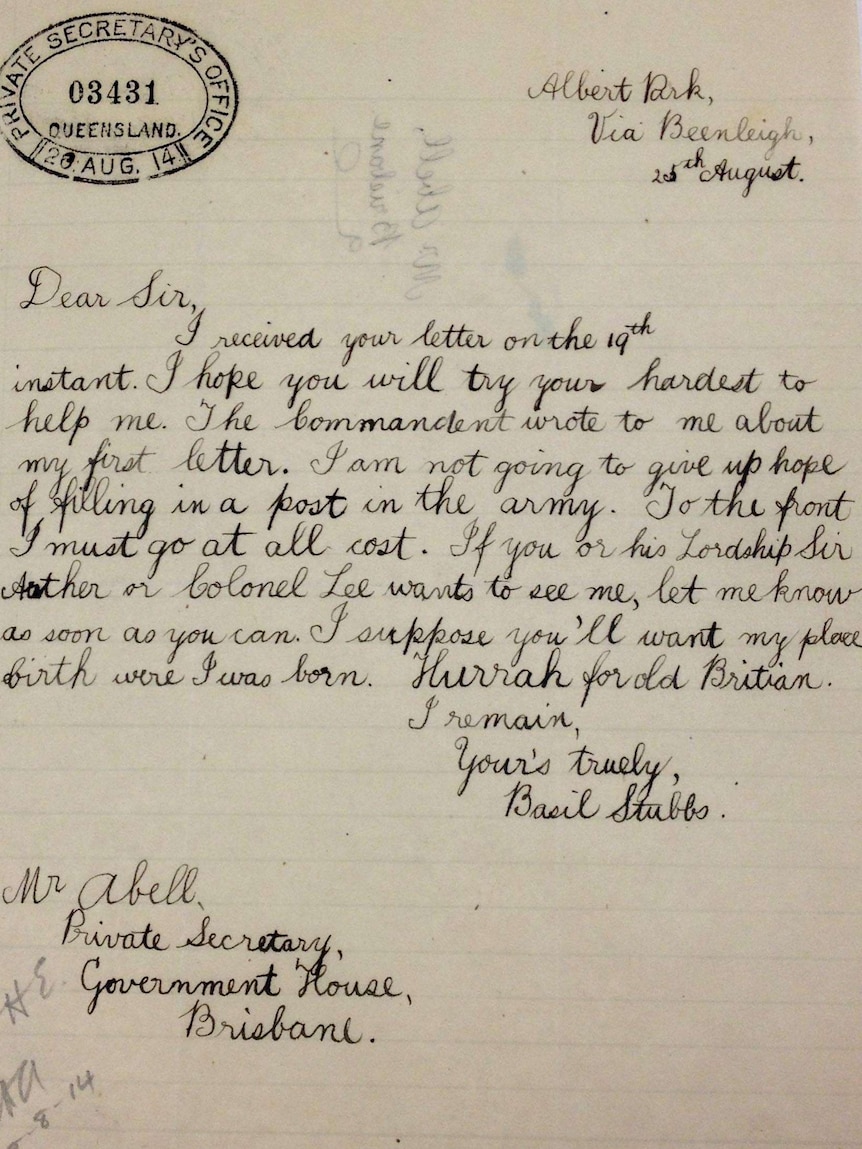 PRIVATE SECRETARY'S OFFICE
03431
QUEENSLAND.
26 AUG. 14
Albert Park,
Via Beenleigh,
25th August.
Mr Abell
Dear Sir,
I received your letter on the 19th
instant. I hope you will try your hardest to
help me. The Commandent wrote to me about
my first letter. I am not going to give up hope
of filling in a post in the army. To the front
I must go at all cost. If you or his Lordship Sir
or Colonel Lee wants to see me, let me know
as soon as you can. I suppose you'll want my place
birth were I was born. Hurrah for old Britian.
I remain,
Your's truely,
Basil Stubbs.
Mr Abell,
Private Secretary,
Government House,
Brisbane.
HE
8-14